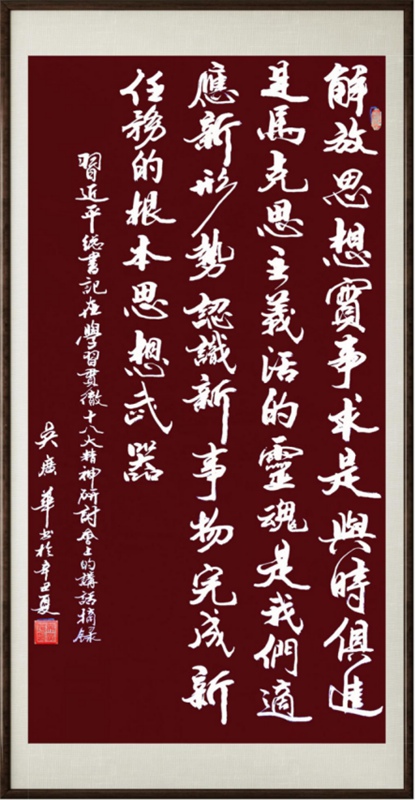 解放思想實事求是與時俱進
是馬克思主義活的靈魂是我們適
應新形勢認識新事物完成新
任務的根本思想武器
習近平總書記在學習貫徹十八大精神研討會上的講話摘錄
吴應華书於辛丑夏